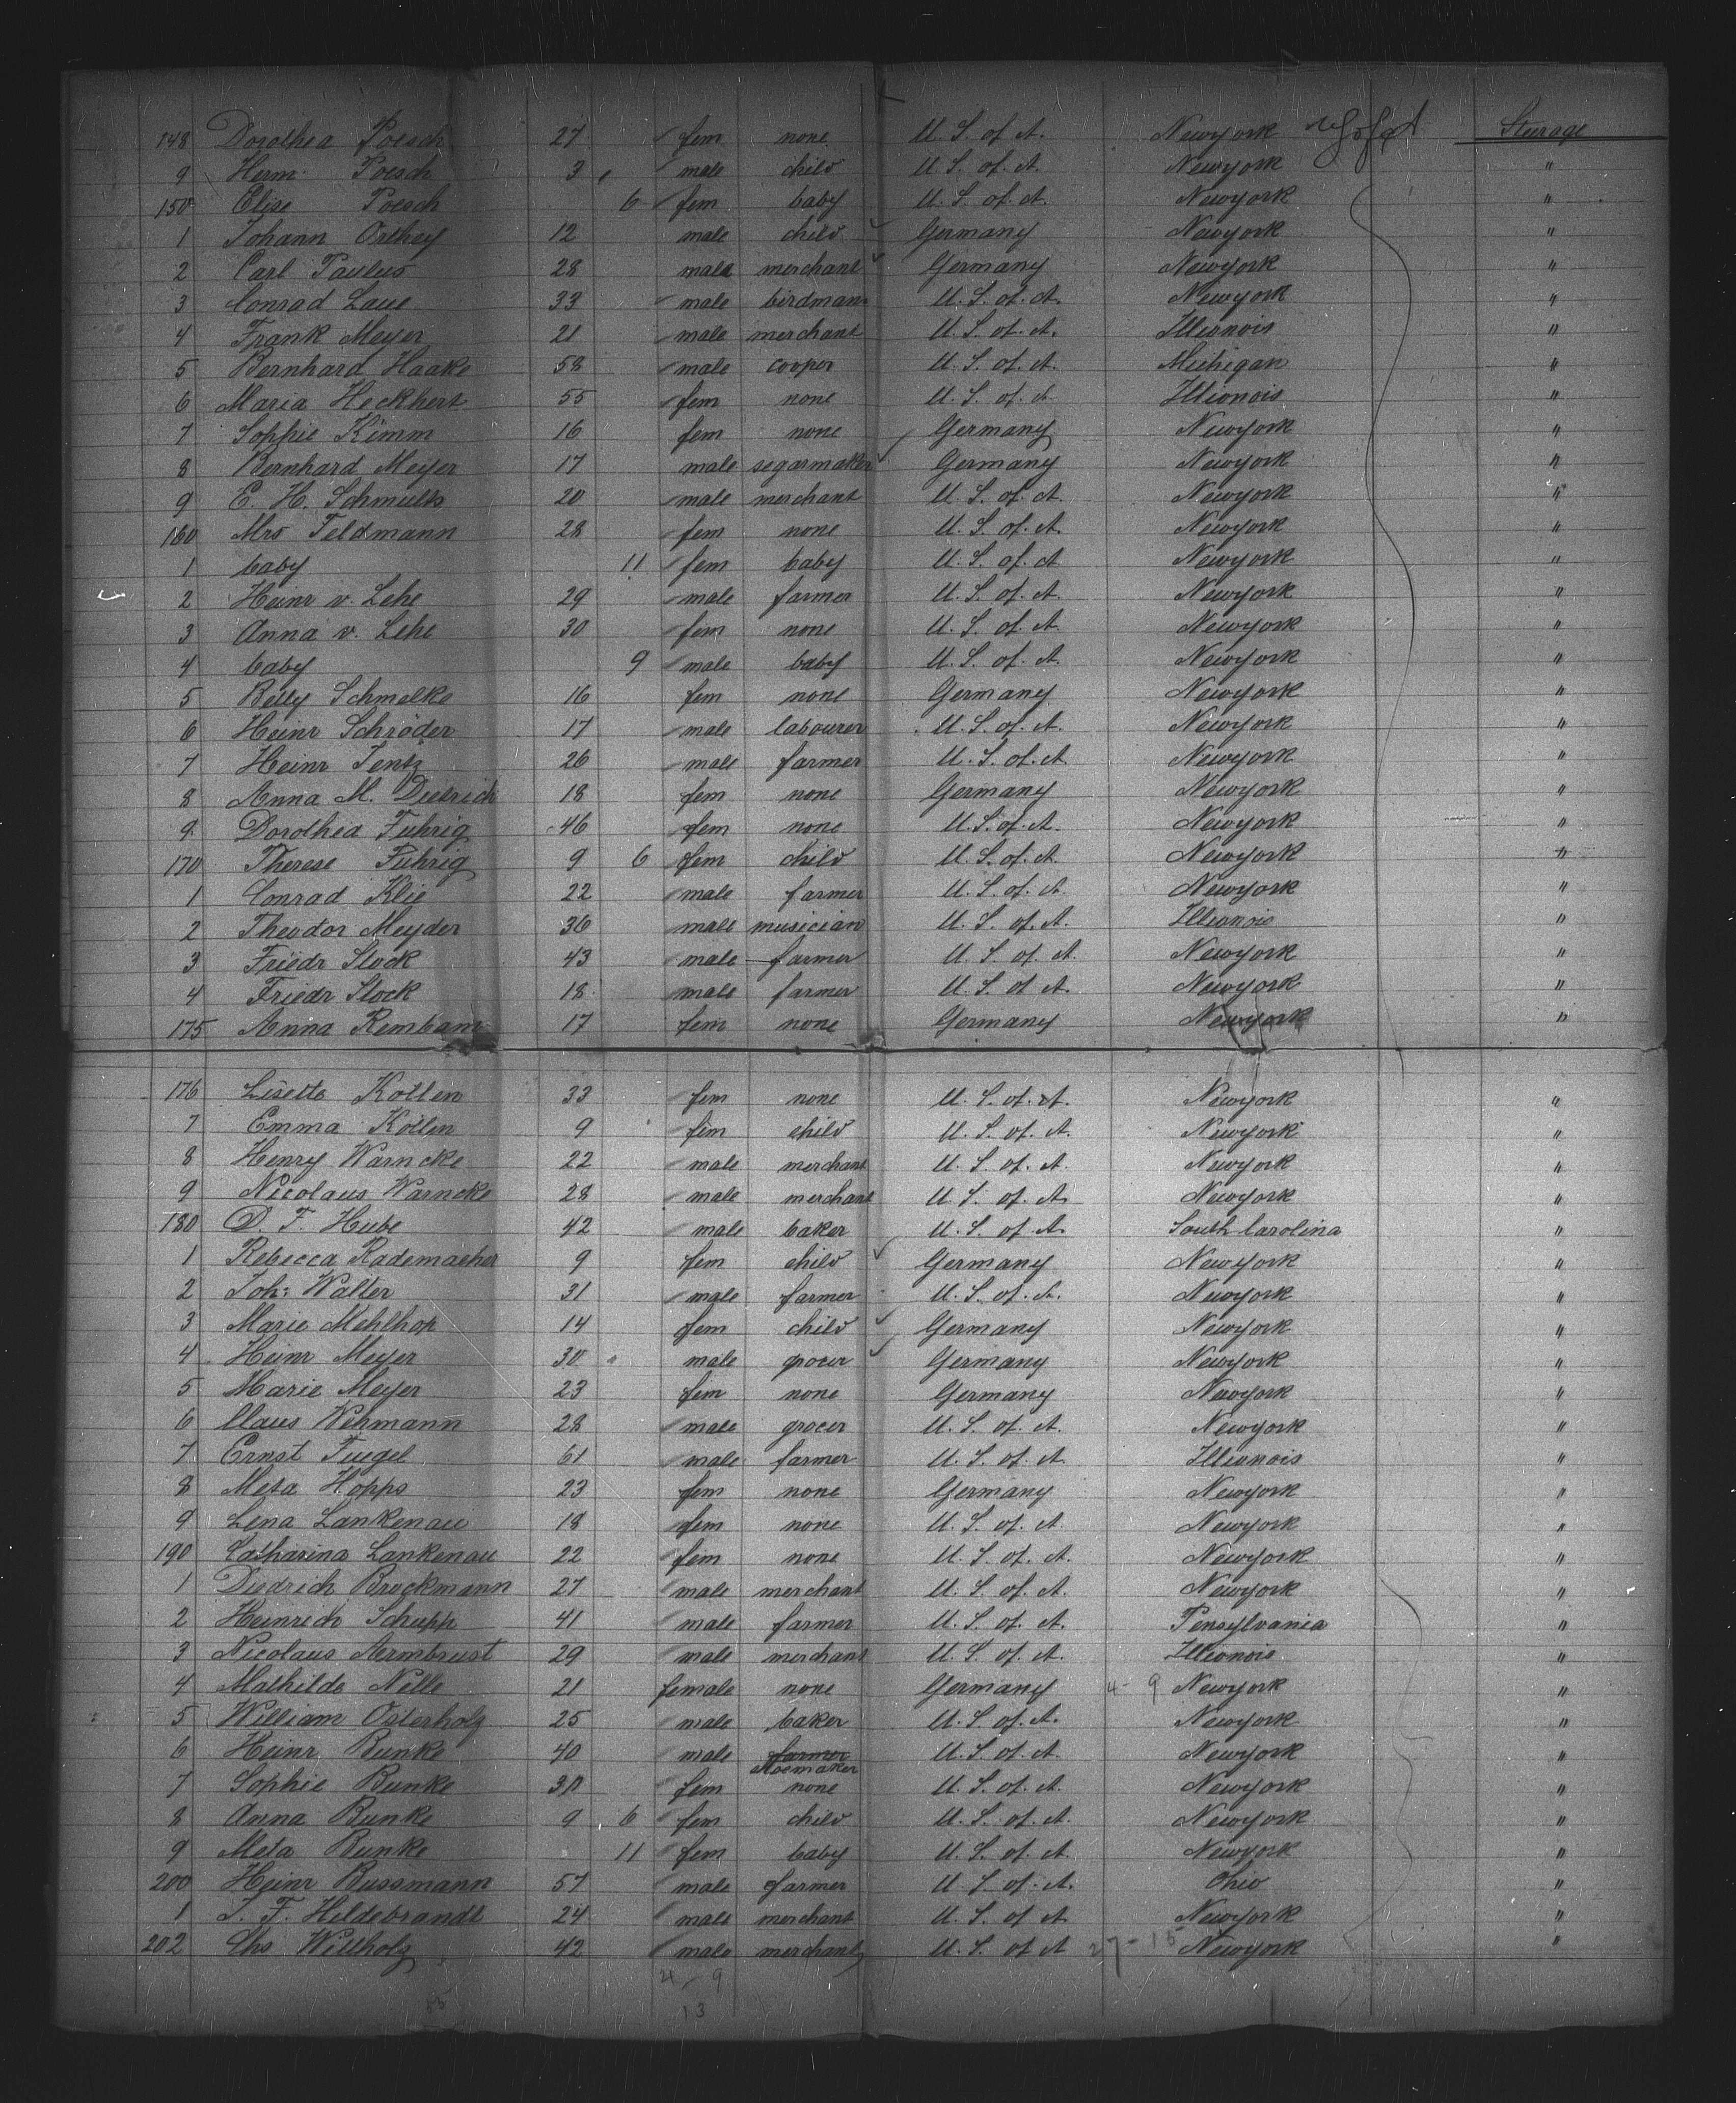 148 Dorothea Poesch 27 fem none U. S. of A. Newyork Steerage
9 Herm. Poesch 3 male child U. S. of A. Newyork "
150 Elise Poesch 6 fem baby U. S. of A. Newyork "
1 Johann Orthey 12 male child Germany Newyork "
2 Carl Paulus 28 male merchant Germany Newyork "
3 Conrad Laue 33 male birdman U. S. of. A. Newyork "
4 Frank Meyer 21 male merchant U. S. of. A. Illionois "
5 Bernhard Haake 58 male cooper U. S. of. A. Michigan "
6 Maria Heckhert 55 fem none U. S. of A Illionois "
7 Sophie Kimm 16 fem none Germany Newyork "
8 Bernhard Meyer 17 male segarmaker Germany Newyork "
9 E. H. Schmults 20 male merchant U. S. of. A Newyork "
160 Mrs Feldmann 28 fem none U. S. of. A Newyork "
1 baby 11 fem baby U. S. of. A Newyork "
2 Heinr v. Lehe 29 male farmer U. S. of. A. Newyork "
3 Anna v. Lehe 30 fem none U. S. of. A. Newyork "
4 baby 9 male baby U. S. of. A. Newyork "
5 Betty Schmelke 16 fem none Germany Newyork "
6 Heinr Schröder 17 male labourer U. S. of. A. Newyork "
7 Heinr Jentz 26 male farmer U. S. of. A Newyork "
8 Anna M. Dietrich 18 fem none Germany Newyork "
9 Dorothea Fuhrig 46 fem none U. S. of. A. Newyork "
170 Therese Fuhrig 9 6 fem child U. S. of. A Newyork "
1 Conrad Klie 22 male farmer U. S. of. A. Newyork "
2 Theodor Meyder 36 male musician U. S. of. A. Illionois "
3 Friedr Stock 43 male farmer U. S. of. A. Newyork "
4 Friedr Stock 18 male farmer U. S. of A. Newyork "
175 Anna 17 fem none Germany Newyork "
176 Lisette Kotten 33 fem none U. S. of. A. Newyork "
7 Emma Kotten 9 fem child U. S. of. A. Newyork "
8 Henry Warncke 22 male merchant U. S. of. A. Newyork "
9 Nicolaus Warncke 28 male merchant U. S. of. A. Newyork "
180 D. F. Hube 42 male baker U. S. of. A South Carolina "
1 Rebecca Rademacher 9 fem child Germany Newyork "
2 Joh: Walter 31 male farmer U. S. of. A. Newyork "
3 Marie Mehlhop 14 fem child Germany Newyork "
4 Heinr Meyer 30 male grocer Germany Newyork "
5 Marie Meyer 23 fem none Germany Newyork "
6 Claus Wehmann 28 male grocer U. S. of. A. Newyork "
7 Ernst 61 male farmer U. S. of. A Illionois "
8 Meta Hopps 23 fem none Germany Newyork "
9 Lena Lankenau 18 fem none U. S. of. A Newyork "
190 Catharina Lankenau 22 fem none U. S. of. A. Newyork "
1 Diedrich Brockmann 27 male merchant U. S. of. A. Newyork "
2 Heinrich Schupp 41 male farmer U. S. of. A. Pensylvania "
3 Nicolaus Armbrust 29 male merchant U. S. of. A. Illionois "
4 Mathilde Nelle 21 female none Germany 4 - 9 Newyork "
5 William Osterholz 25 male baker U. S. of. A. Newyork "
6 Heinr Bunke 40 male farmer U. S. of. A. Newyork "
shoemaker
7 Sophie Bunke fem none U. S. of. A. Newyork "
8 Anna Bunke 9 6 fem child U. S. of. A. Newyork "
9 Meta Bunke 11 fem baby U. S. of. A Newyork "
200 Heinr Bussmann 57 male farmer U. S. of. A. Ohio "
1 J. F. Hildebrandt 24 male merchant U. S. of A Newyork "
202 Chs Willholz 42 male merchant U. S. of A 27 - 15 Newyork "
4 - 9
13